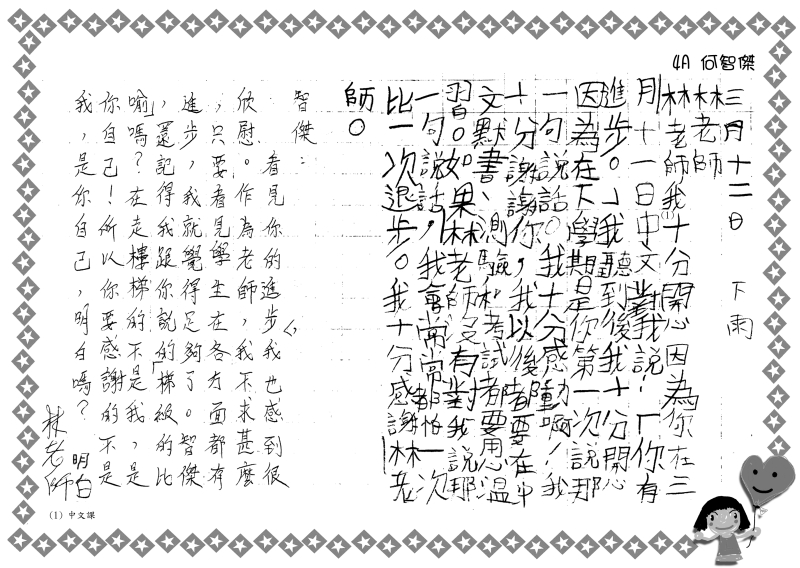 4A 何智傑
三月十二日 下雨
林老師
林老師我十分開心因為你在三
月十一日中文對我說:「你有
進步。」我聽到後我十分開心
因為在下學期是你第一次說那
一句說話。我十分感動啊!我
十分謝謝你,我以後都要在中
文默書、測驗和考試都要用心溫
習。如果林老師又有對我說那
一句說話,我會常常都怕一次
比一次退步。我十分感謝林老
師。
智傑:
看見你的進步,我也感到很
欣慰。作為老師,我不求甚麼
,只要看見學生在各方面都有
進步,我就覺得足夠了。智傑
,還記得我跟你說的「梯級的比
喻」嗎?在走樓梯的不是我,是
你自己!所以你要感謝的不是
我,是你自己,明白嗎?
明白
林老師
(1) 中文課